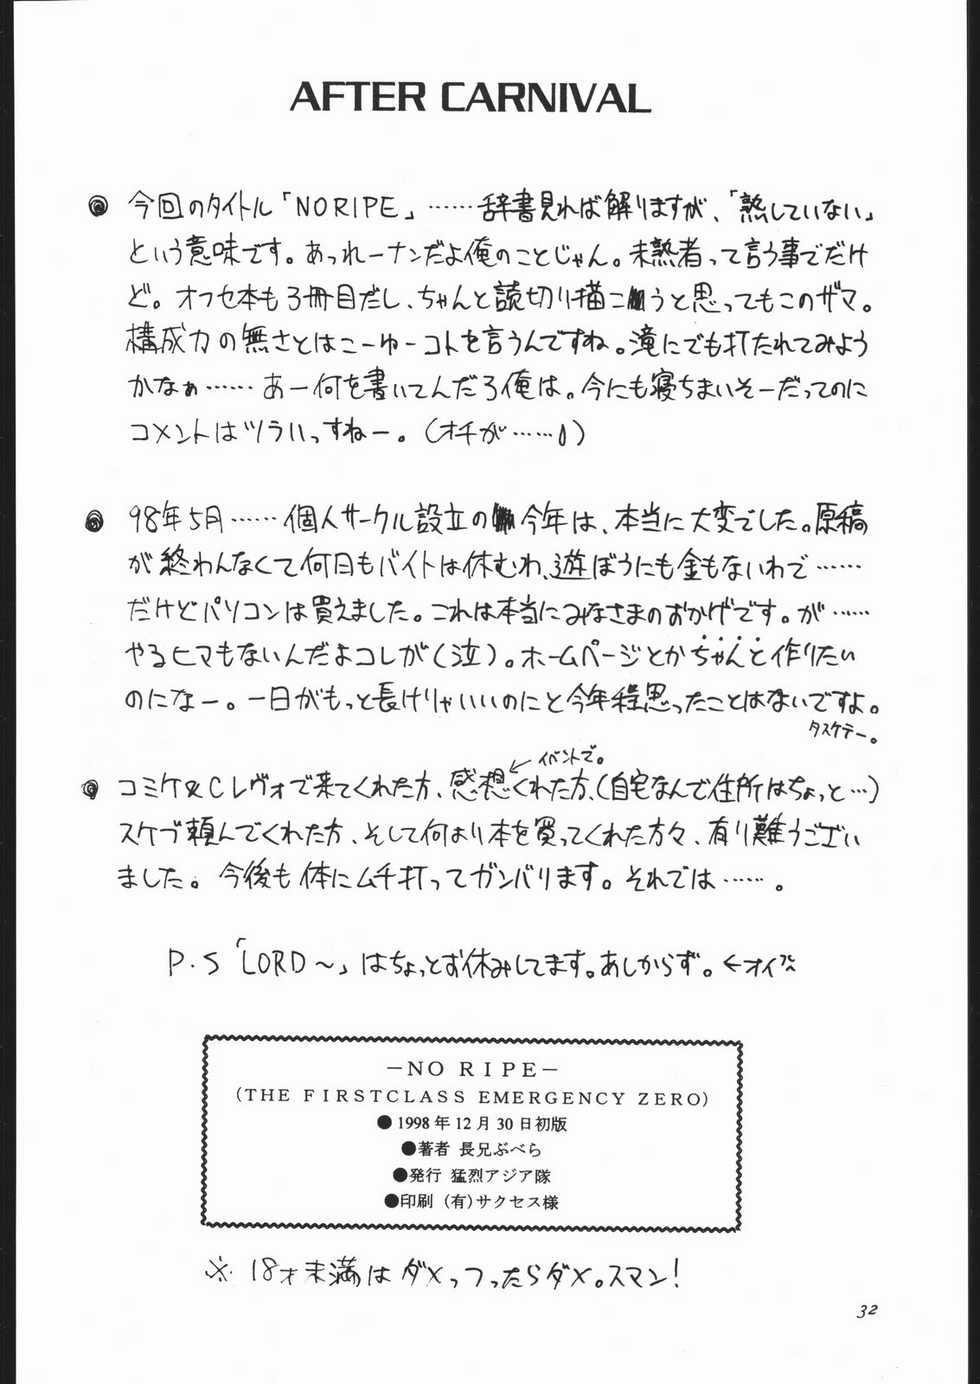 AFTER CARNIVAL
● 今回のタイトル「NO RIPE」……辞書見れば解りますが、「熟していない」
という意味です。あっれーナンだよ俺のことじゃん。未熟者って言う事でだけ
ど。オフセ本も3冊目だし、ちゃんと読切り描こうと思ってもこのザマ。
構成力の無さとはこーゆーコトを言うんですね。滝にでも打たれてみよう
かなぁ……あー何を書いてんだろ俺は。今にも寝ちまいそーだってのに
コメントはツラいっすねー。(オチが……)
● 98年5月……個人サークル設立の今年は、本当に大変でした。原稿
が終わんなくて何日もバイトは休むわ、遊ぼうにも金もないわで……
だけどパソコンは買えました。これは本当にみなさまのおかげです。が……
やるヒマもないんだよコレが(泣)。ホームページとかちゃんと作りたい
のになー。一日がもっと長けりゃいいのにと今年程思ったことはないですよ。
タスケテー。
イベントで。
● コミケ&Cレヴォで来てくれた方、感想くれた方、(自宅なんで住所はちょっと…)
スケブ頼んでくれた方、そして何より本を買ってくれた方々、有り難うござい
ました。今後も体にムチ打ってガンバります。それでは……。
P.S「LORD〜」はちょっとお休みしてます。あしからず。←オイ
－NO RIPE－
(THE FIRSTCLASS EMERGENCY ZERO)
●1998年12月30日初版
●著者 長兄ぶべら
●発行 猛烈アジア隊
●印刷 (有)サクセス様
※ 18才未満はダメっつったらダメ。スマン!
32